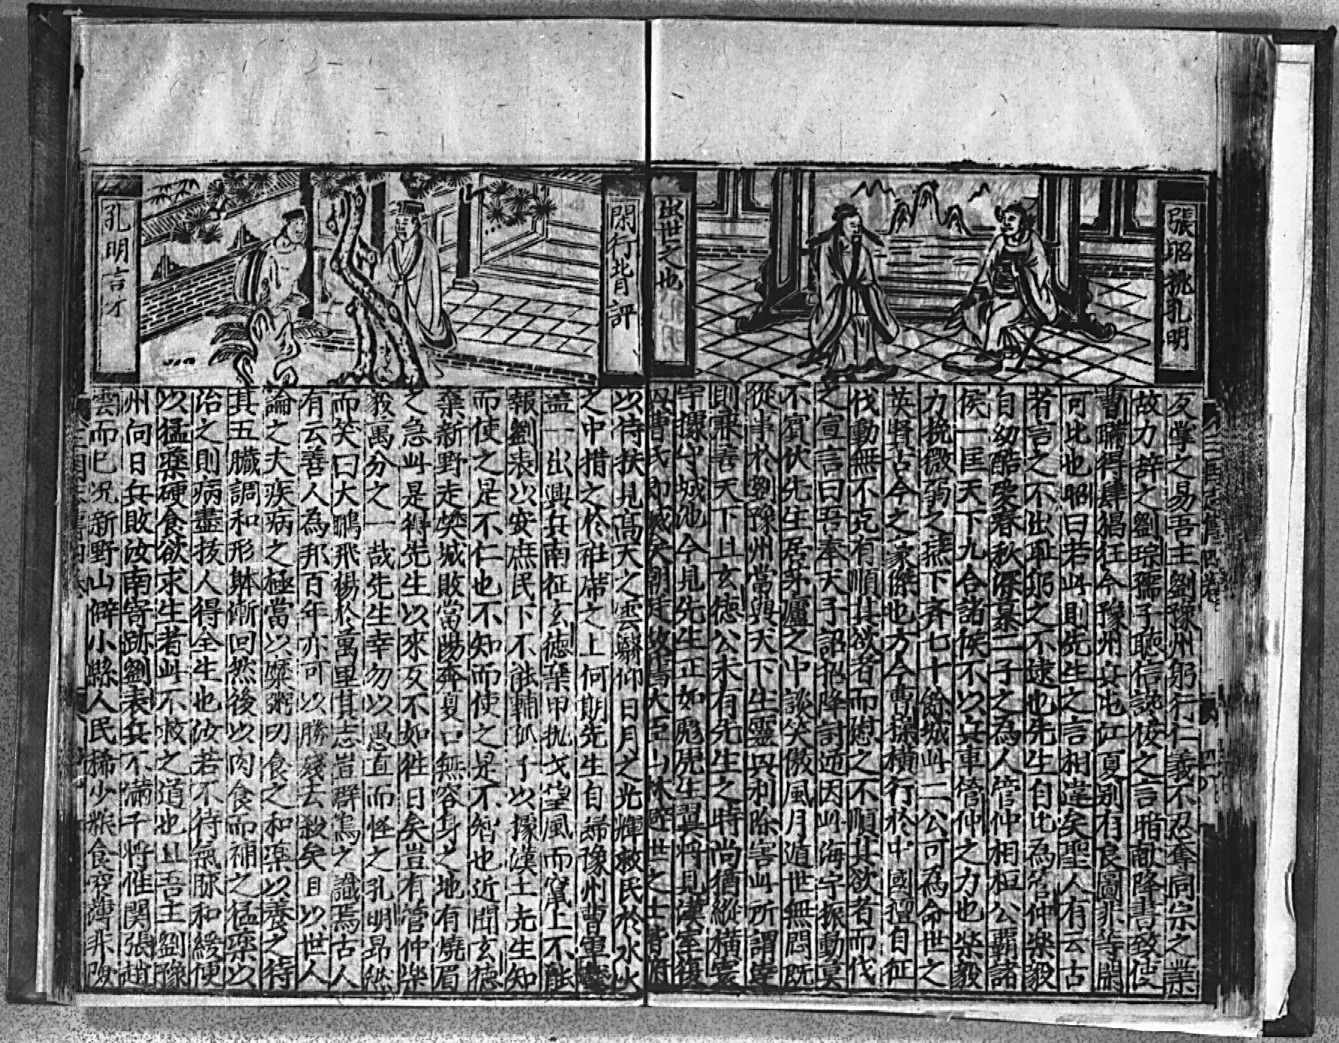 張昭挑孔明
出世之也
反掌之易吾主劉豫州躬行仁義不忍奪同宗之業
故力辞之劉琮孺子聽信讒佞之言暗獻降書致使
曹瞞得肆猖狂今豫州兵屯江夏別有良圖非等閑
可比也昭曰若此則先生之言相違矣聖人有云古
者言之不出耻躬之不逮也先生自比為管仲樂毅
自幼酷愛春秋深慕二子之為人管仲相桓公霸諸
侯一匡天下九合諸侯不以兵車管仲之力也樂毅
力挽微弱之燕下齐七十餘城此二公可為命世之
英賢古今之豪傑也方今曹操橫行於中國擅自征
伐動無不克有順其欲者而慰之不順其欲者而伐
之宣言曰吾奉天子詔招降討逆因此海宇振動莫
不賓伏先生居茅廬之中談笑傲風月遁世無悶既
從事於劉豫州當與天下生靈興利除害此所謂達
則兼善天下且玄德公未有先生之時尚猶縱橫寰
宇據守城池今見先生正如彪虎生翼將見漢室復
曹氏即滅矣朝廷故舊大臣山林避世之士皆
閑行背評
孔明言才
以待扶見高天之雲翳仰日月之光輝救民於水火
之中措之於衽席之上何期先生自歸豫州曹軍
一出興兵南征玄德棄甲抛戈望風而竄上不能
報劉表以安庶民下不能輔孤子以據漢土先生知
而使之是不仁也不知而使之是不智也近聞玄德
棄新野走樊城敗當陽奔夏口無容身之地有燒眉
之急此是得先生以來反不如往日矣豈有管仲樂
毅萬分之一哉先生幸勿以愚直而怪之孔明昂然
而笑曰大鵬飛揚於萬里其志豈群鳥之識焉古人
有云善人為邦百年亦可以勝殘去殺矣且以世人
論之夫疾病之極當以糜粥与食之和藥以養之待
其五臟調和形躰漸回然後以肉食而補之猛藥以
治之則病盡拔人得全生也汝若不待氣脉和緩便
以猛藥硬食欲求生者此不救之道也且吾主劉豫
州向日兵敗汝南寄跡劉表兵不滿千將惟関張趙
雲而已况新野山僻小縣人民稀少粮食窄薄非險